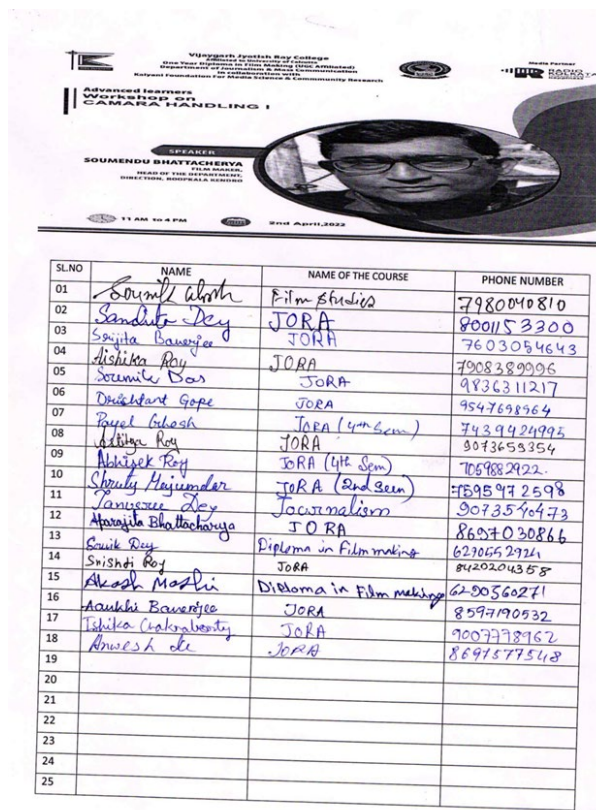 Vijaygarh Jyotish Ray College
Affiliated to University of Calcutta
One Year Diploma in Film Making (UGC Affiliated)
Department of Journalism & Mass Communication
in collaboration with
Kalyani Foundation For Media Science & Community Research
Media Partner
RADIO
KOLKATA
Advanced learners
Workshop on
CAMARA HANDLING I
SPEAKER
SOUMENDU BHATTACHERYA
FILM MAKER,
HEAD OF THE DEPARTMENT,
DIRECTION, ROOPKALA KENDRO
11 AM to 4 PM 2nd April,2022
SL.NO NAME NAME OF THE COURSE PHONE NUMBER
01 Soumik Ghosh Film Studies 7980040810
02 Dey JORA 8001153300
03 Srijita Banerjee JORA 7603054643
04 Aishika Roy JORA 7908389996
05 Das JORA 9836311217
06 Gope JORA 9547698964
07 Payel Ghosh JORA (4th Sem) 7439424995
08 Roy JORA 9073659354
09 Abhisek Roy JORA (4th Sem) 7059882922.
10 JORA (2nd Seen) 7595972598
11 Dey Journalism 9073540473
12 Aparajita Bhattacharya JORA 8697030866
13 Souik Dey Diploma in Film making
14 Roy JORA 8420204358
15 Akash Diploma in Film making 6290360271
16 Banerjee JORA 8597190532
17 Ishika Chakraborty JORA 9007778962
18 Anwesh JORA 8697577548
19
20
21
22
23
24
25